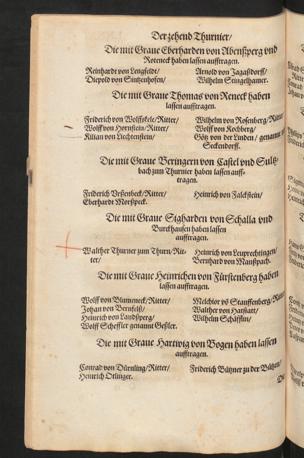 Der zehend Thurnier/
Die mit Graue Eberharden von Abenßperg vnd
Roteneck haben lassen aufftragen.
Reinhardt von Lengfeldt/
Diepold von Sintzenhofen/
Arnold von Jagaßdorff/
Wilhelm Stingelhamer.
Die mit Graue Thomas von Reneck haben
lassen aufftragen.
Friderich von Wolffskele/Ritter/
Wolff von Hornstein/Ritter/
Kilian von Liechtenstein/
Wilhelm von Rosenberg/Ritter/
Wolff von Kochberg/
Götz von der Linden/ genannt
Seckendorff.
Die mit Graue Beringern von Castel vnd Sultz-
bach zum Thurnier haben lassen auff-
tragen.
Friderich Vrßenbeck/Ritter/
Eberhardt Morßpeck.
Heinrich von Falckstein/
Die mit Graue Sigharden von Schalla vnd
Burckhausen haben lassen
aufftragen.
Walther Thurner zum Thurn/Rit-
ter/
Heinrich von Leuprechtingen/
Bernhard von Mansspach.
Die mit Graue Heinrichen von Fürstenberg haben
lassen aufftragen.
Wolff von Blumeneck/Ritter/
Johan von Bernfelß/
Heinrich von Landsperg/
Wolff Scheffler genannt Geßler.
Melchior võ Stauffenberg/Ritter
Walther von Hatstatt/
Wilhelm Schäfflin/
Die mit Graue Hartwig von Bogen haben lassen
aufftragen.
Conrad von Dürnling/Ritter/
Heinrich Otlinger.
Friderich Bützner zu der Bützen/